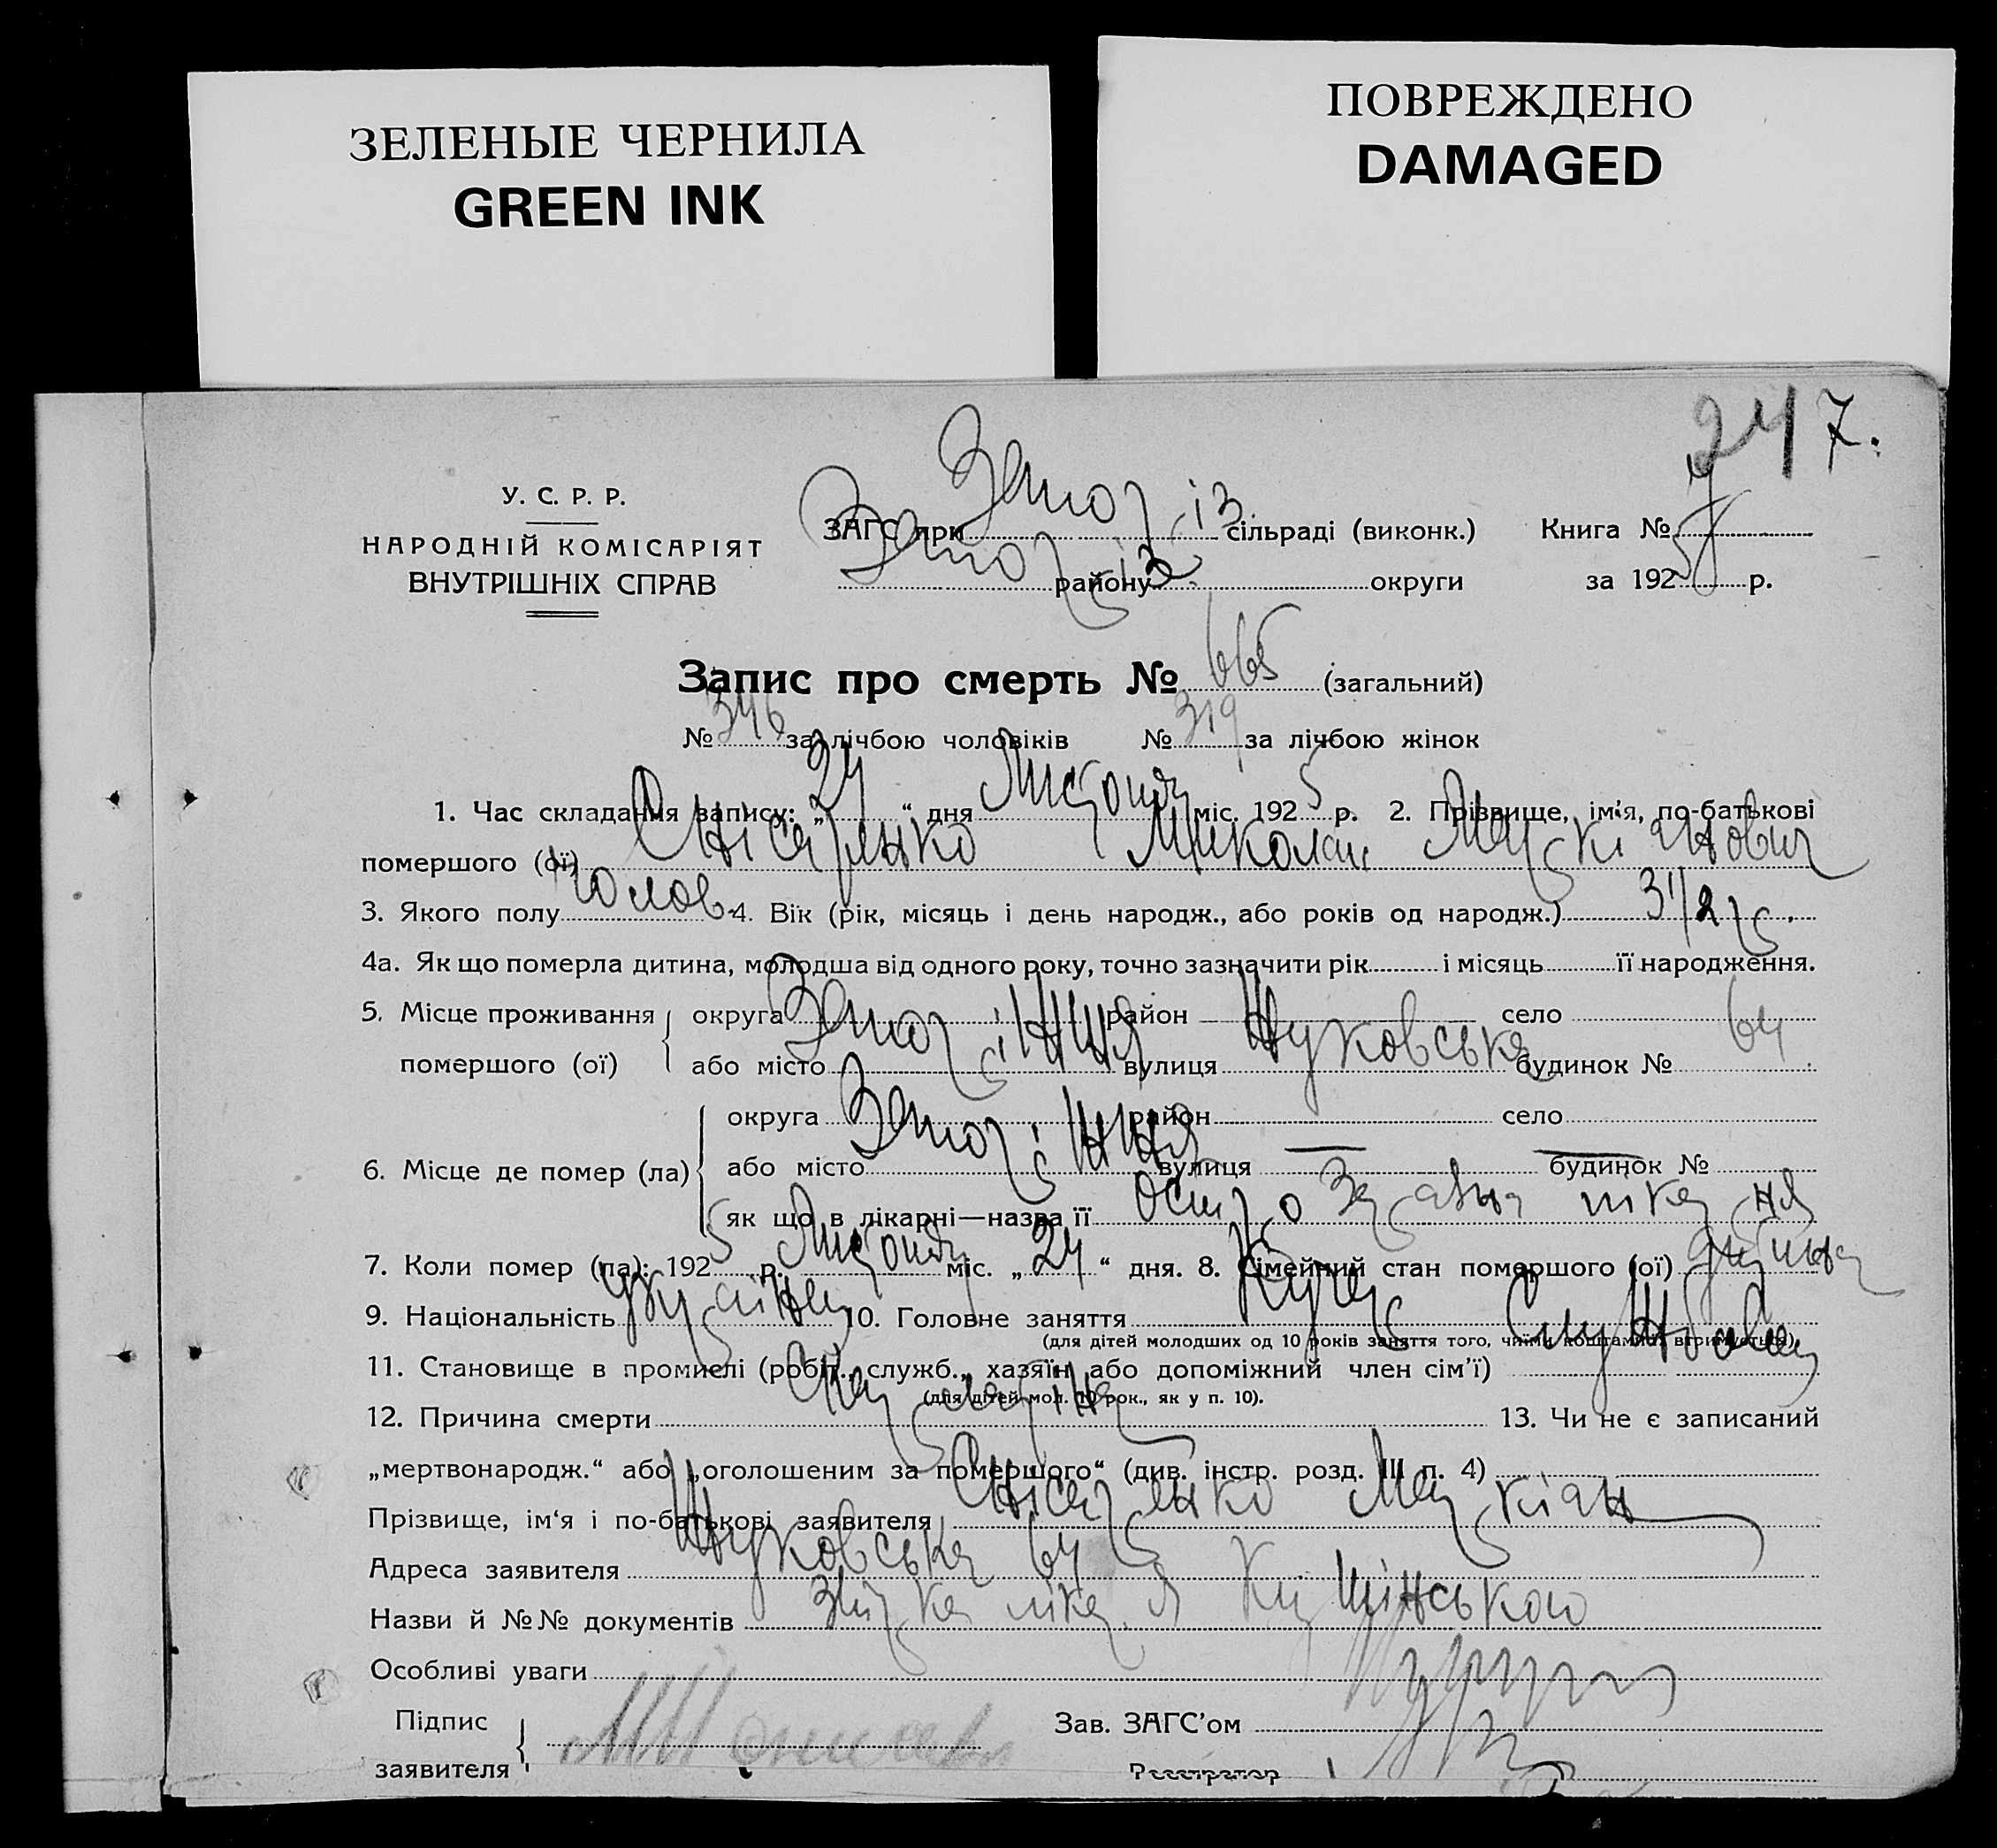 ЗЕЛЕНЫЕ ЧЕРНИЛА
GREEN INK
ПОВРЕЖДЕНО
DAMAGED
247.
У. С. Р. Р.
НАРОДНІЙ КОМІСАРІЯТ
ВНУТРІШНІХ СПРАВ
ЗАГС при Запоріз. сільраді (виконк.) Книга №
Запоріз. району округи за 1925 р.
Запис про смерть № 665 (загальний)
№ 346 за лічбою чоловіків № 319 за лічбою жінок
1. Час складання запису: „24“ дня Листопада міс. 1925 р. 2. Прізвище, ім'я, по-батькові
помершого (ої) Снісаренко Миколай Маркіянович
3. Якого полу чолов. 4. Вік (рік, місяць і день народж., або років од народж.) 3 1/2 р.
4а. Як що померла дитина, молодша від одного року, точно зазначити рік і місяць її народження.
5. Місце проживання помершого (ої) округа район село
або місто Запоріжжя вулиця Жуковська будинок № 64
6. Місце де помер (ла) округа район село
або місто Запоріжжя вулиця — будинок № —
як що в лікарні—назва її остро заразна лікарня
7. Коли помер (ла): 1925 р. Листопада міс. „24“ дня. 8. Сімейний стан помершого (ої) дитина
9. Національність українец 10. Головне заняття
(для дітей молодших од 10 років заняття того, чиїми коштами втримується)
11. Становище в промислі (робіт., служб., хазяїн або допоміжний член сім'ї) Службовец
(для дітей мол. 10 рок., як у п. 10).
12. Причина смерти Скарлатіна 13. Чи не є записаний
„мертвонародж.“ або „оголошеним за помершого“ (див. інстр. розд. III п. 4)
Прізвище, ім'я і по-батькові заявителя Снісаренко Маркіян
Адреса заявителя Жуковська 64
Назви й №№ документів лікаря
Особливі уваги
Підпис
заявителя
Зав. ЗАГС'ом
Реєстратор